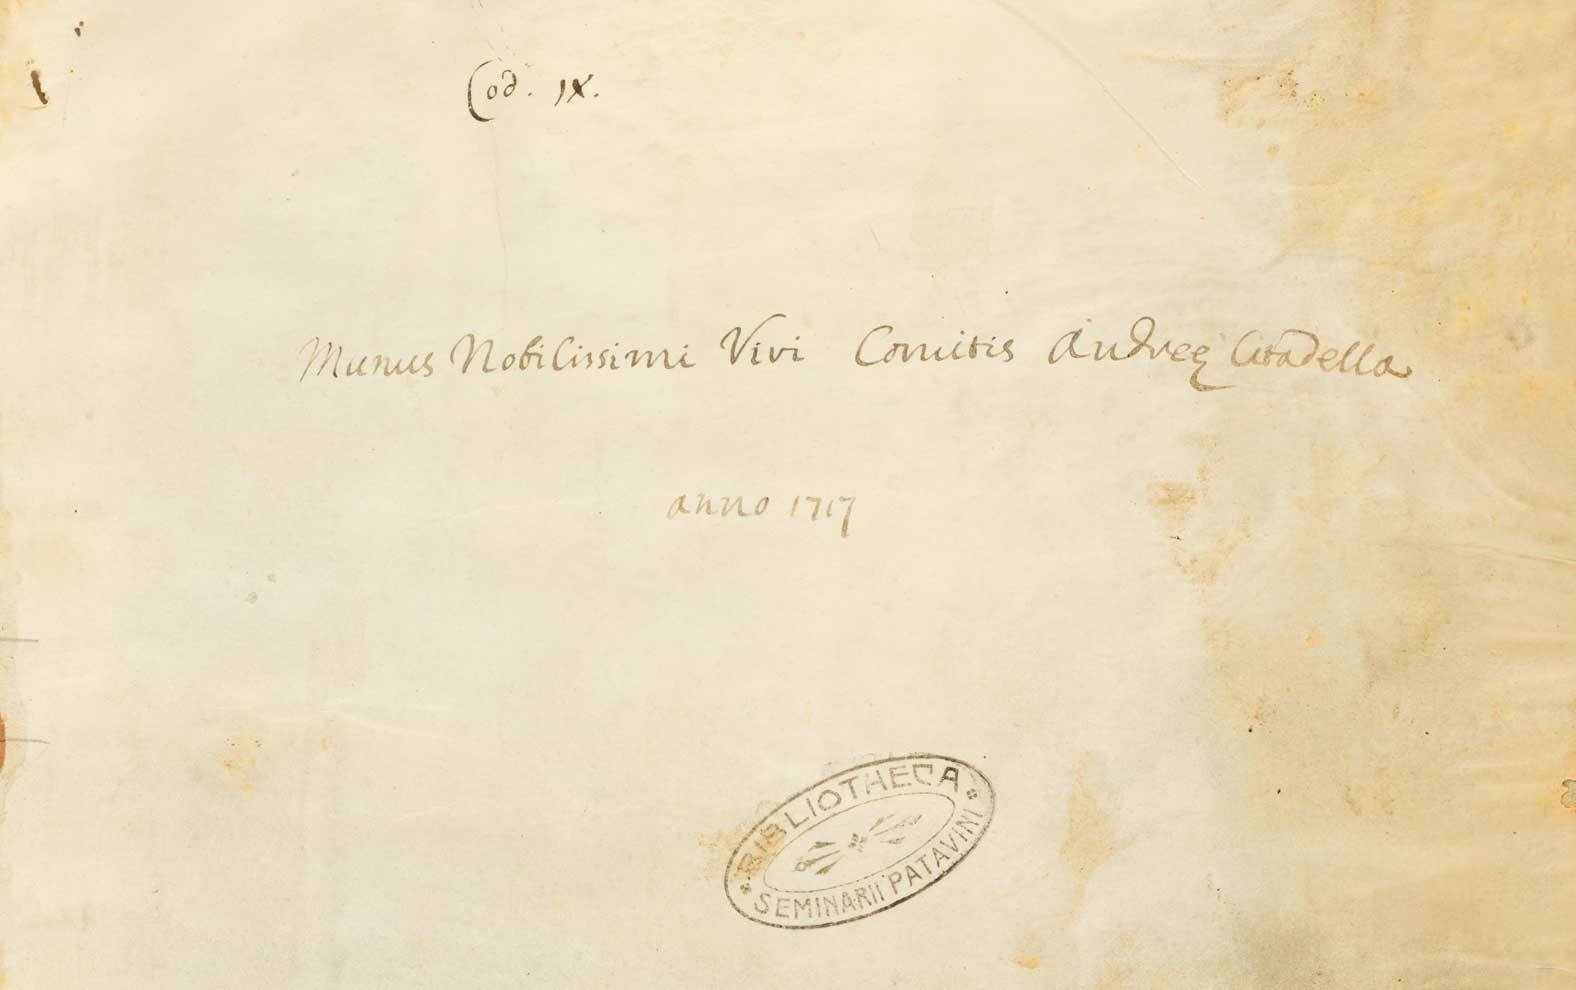 Cod. IX.
Munus Nobilissimi Viri Comitis Andreę Citadella
anno 1717
BIBLIOTHECA
SEMINARII PATAVINI